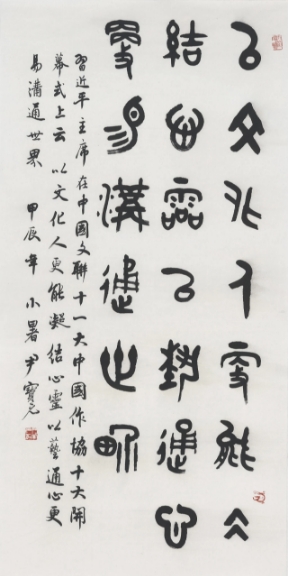 以文化人更能凝
結心靈以藝通心
更易溝通世界
習近平主席在中國文聯十一大中國作協十大開
幕式上云以文化人更能凝結心靈以藝通心更
易溝通世界 甲辰年小暑尹寶